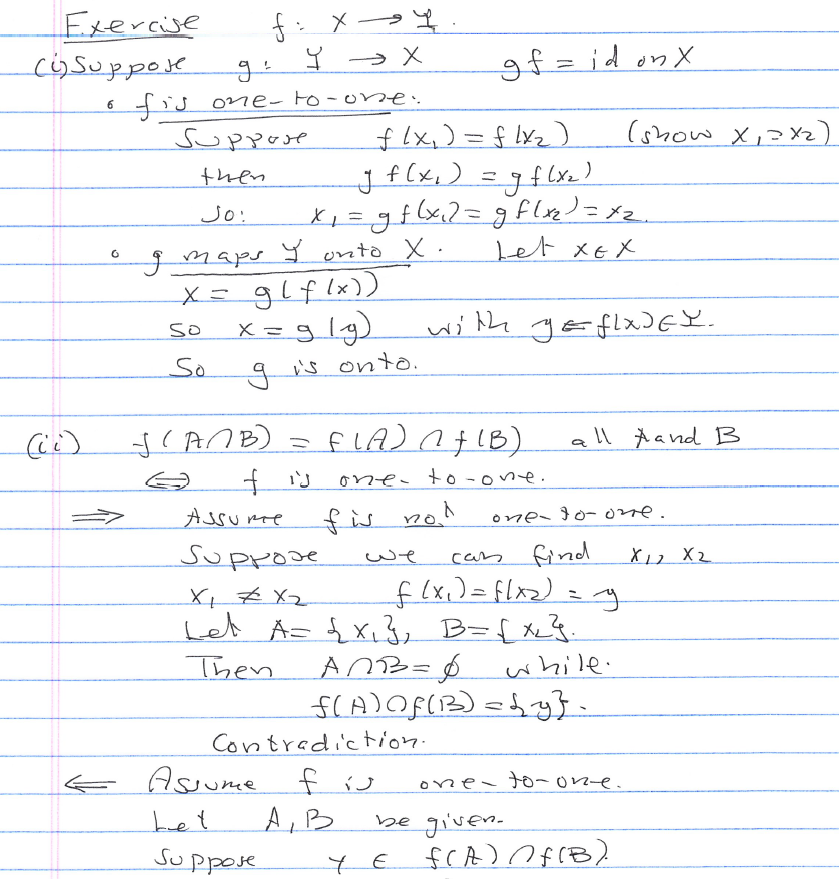 Exercise f: X → Y.
(i) Suppose g: Y → X gf = id on X
• f is one-to-one:
Suppose f(x₁) = f(x₂) (show x₁ = x₂)
then g f(x₁) = g f(x₂)
So: x₁ = g f(x₁) = g f(x₂) = x₂.
• g maps Y onto X. Let x ∈ X
x = g(f(x))
so x = g(y) with y = f(x) ∈ Y.
So g is onto.
(ii) f(A∩B) = f(A) ∩ f(B) all A and B
⇔ f is one-to-one.
⇒ Assume f is not one-to-one.
Suppose we can find x₁, x₂
x₁ ≠ x₂ f(x₁) = f(x₂) = y
Let A = {x₁}, B = {x₂}.
Then A∩B = ∅ while.
f(A)∩f(B) = {y}.
Contradiction.
⇐ Assume f is one-to-one.
Let A, B be given.
Suppose y ∈ f(A) ∩ f(B).